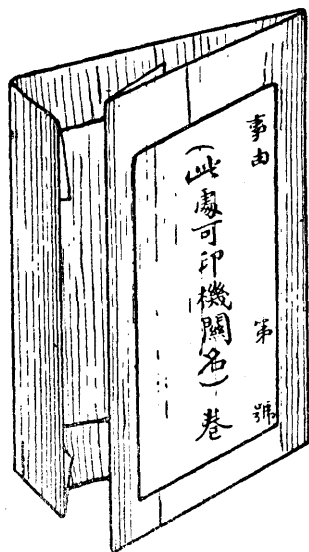 事由　第　號
(此處可印機關名)卷